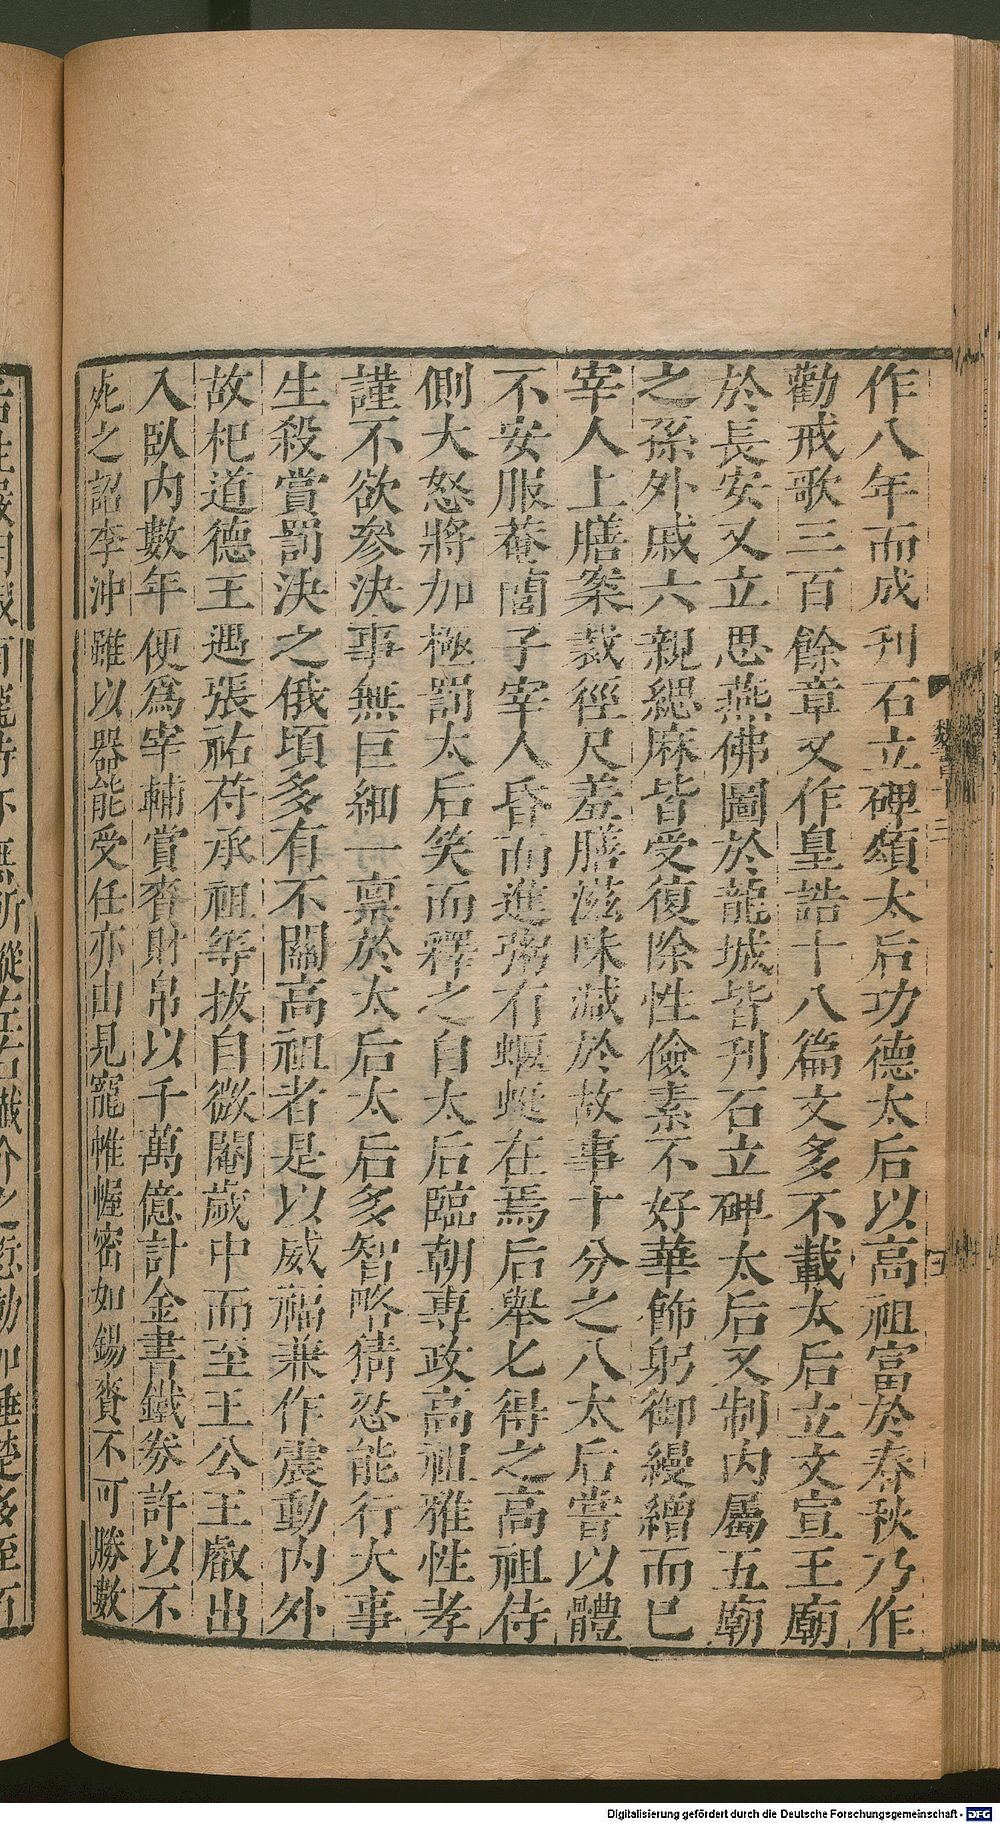 作八年而成刊石立碑頌太后功德太后以高祖富於春秋乃作
勸戒歌三百餘章又作皇誥十八篇文多不載太后立文宣王廟
於長安又立思燕佛圖於龍城皆刊石立碑太后又制内屬五廟
之孫外戚六親緦麻皆受復除性儉素不好華飾躬御縵繒而已
宰人上膳案裁徑尺羞膳滋味減於故事十分之八太后嘗以體
不安服菴䕡子宰人昏而進粥有蝘蜓在焉后舉匕得之高祖侍
側大怒將加極罰太后笑而釋之自太后臨朝專政高祖雅性孝
謹不欲參決事無巨細一禀於太后太后多智略猜忍能行大事
生殺賞罰決之俄頃多有不關高祖者是以威福兼作震動内外
故杞道德王遇張祐苻承祖等拔自微閹歲中而至王公王叡出
入臥内數年便爲宰輔賞賚財帛以千萬億計金書鐵券許以不
死之詔李沖雖以器能受任亦由見寵帷幄密加錫賚不可勝數
魏書十三
Digitalisierung gefördert durch die Deutsche Forschungsgemeinschaft - DFG